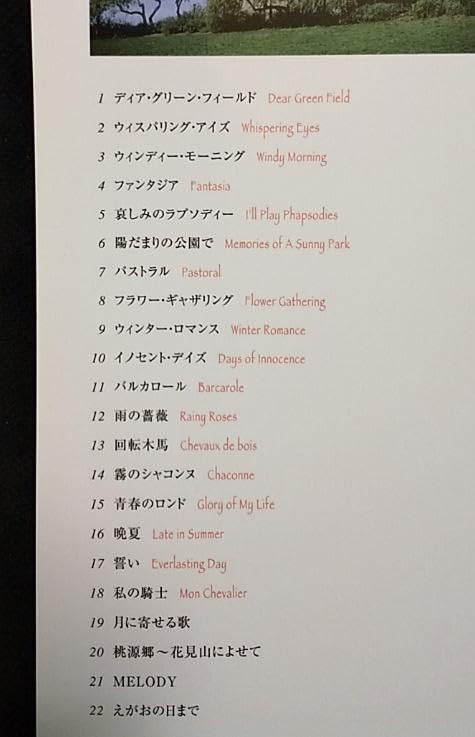 1 ディア・グリーン・フィールド Dear Green Field
2 ウィスパリング・アイズ Whispering Eyes
3 ウィンディー・モーニング Windy Morning
4 ファンタジア Fantasia
5 哀しみのラプソディー I'll Play Phapsodies
6 陽だまりの公園で Memories of A Sunny Park
7 パストラル Pastoral
8 フラワー・ギャザリング Flower Gathering
9 ウィンター・ロマンス Winter Romance
10 イノセント・デイズ Days of Innocence
11 バルカロール Barcarole
12 雨の薔薇 Rainy Roses
13 回転木馬 Chevaux de bois
14 霧のシャコンヌ Chaconne
15 青春のロンド Glory of My Life
16 晩夏 Late in Summer
17 誓い Everlasting Day
18 私の騎士 Mon Chevalier
19 月に寄せる歌
20 桃源郷～花見山によせて
21 MELODY
22 えがおの日まで